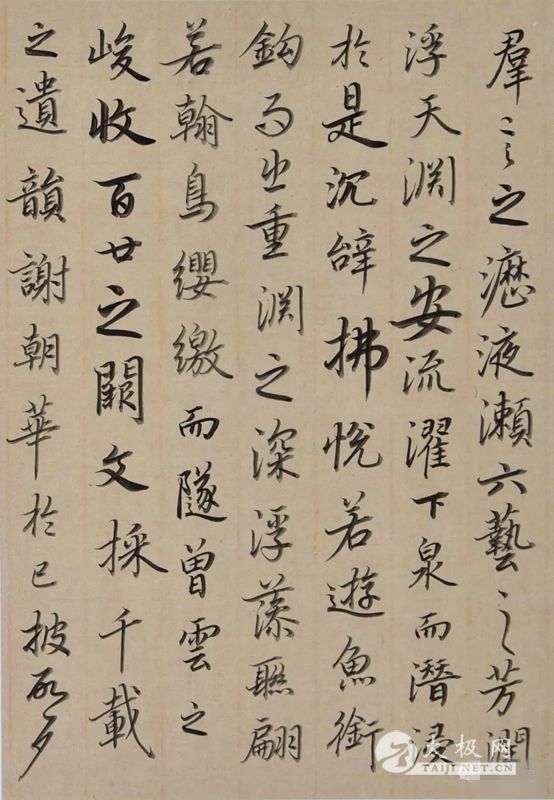 羣言之瀝液漱六藝之芳潤
浮天淵之安流濯下泉而潛浸
於是沉辭拂悅若遊魚銜
鈎而出重淵之深浮藻聯翩
若翰鳥纓繳而隧曾雲之
峻收百世之闕文採千載
之遺韻謝朝華於已披啟夕
太极网
TAIJI.NET.CN